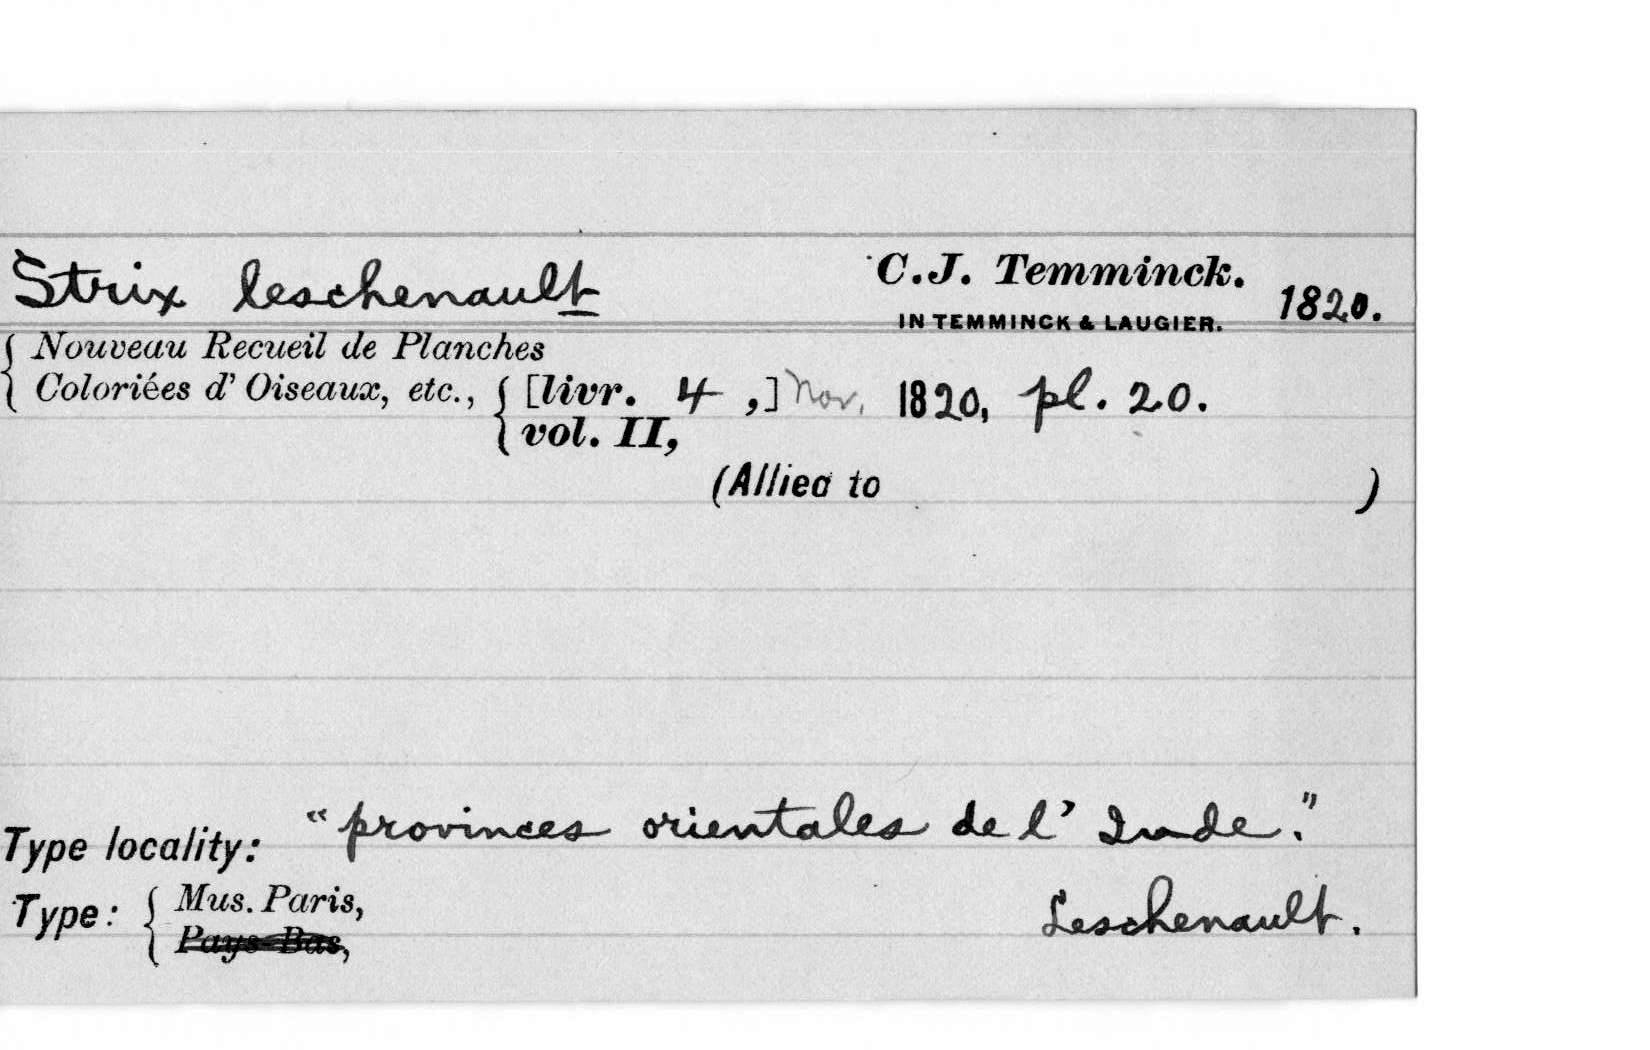 Strix leschenault C.J. Temminck. 1820.
IN TEMMINCK & LAUGIER.
Nouveau Recueil de Planches
Coloriées d' Oiseaux, etc., [livr. 4 ,] Nov. 1820, pl. 20.
vol. II,
(Allied to )
Type locality: "provinces orientales de l' Inde."
Type: Mus. Paris, Leschenault.
Pays-Bas,